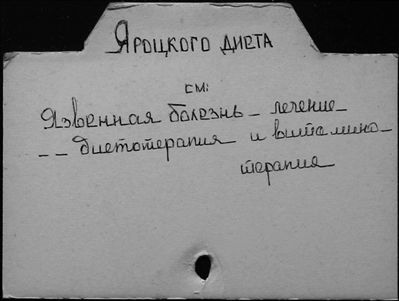 Яроцкого диета
см:
Язвенная болезнь - лечение -
- - диетотерапия и витамино-
терапия